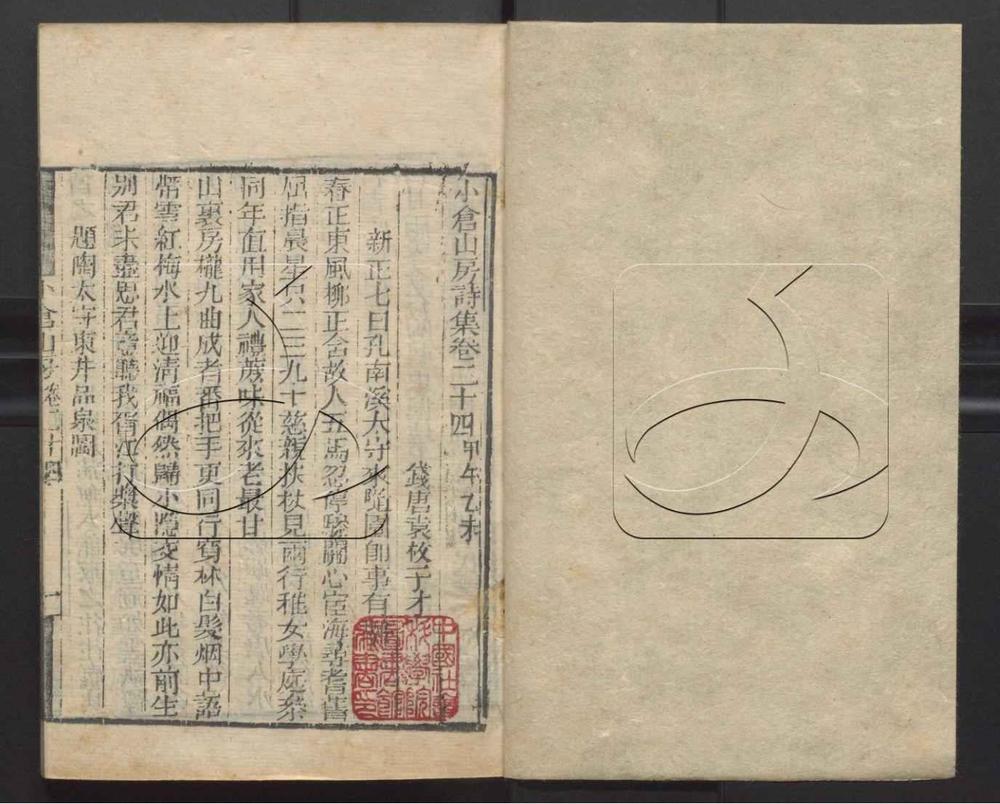 小倉山房詩集卷二十四 甲午乙未
錢唐袁枚子才
新正七日孔南溪太守來隨園卽事有
春正東風柳正含故人五馬忽停驂關心宦海尋耆舊
屈指晨星只二三九十慈親扶杖見兩行稚女學庭參
同年值用家人禮蔗味從來老最甘
山裏房櫳九曲成者番把手更同行窗林白髮烟中語
幣雲紅梅水上迎清福偶然歸小隱交情如此亦前生
別君未盡思君意聽我胥江打槳聲
題陶太守東井品泉圖
小倉山房卷二十四
一
中國社
科學院
圖書館
藏書印